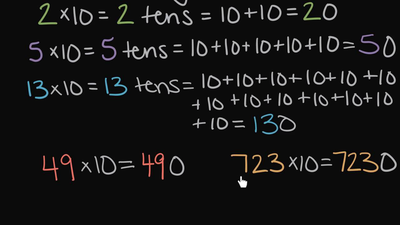 2×10=2 tens=10+10=20
5×10=5 tens=10+10+10+10+10=50
13×10=13 tens=10+10+10+10+10+10
+10+10+10+10+10+10
+10=130
49×10=490 723×10=7230